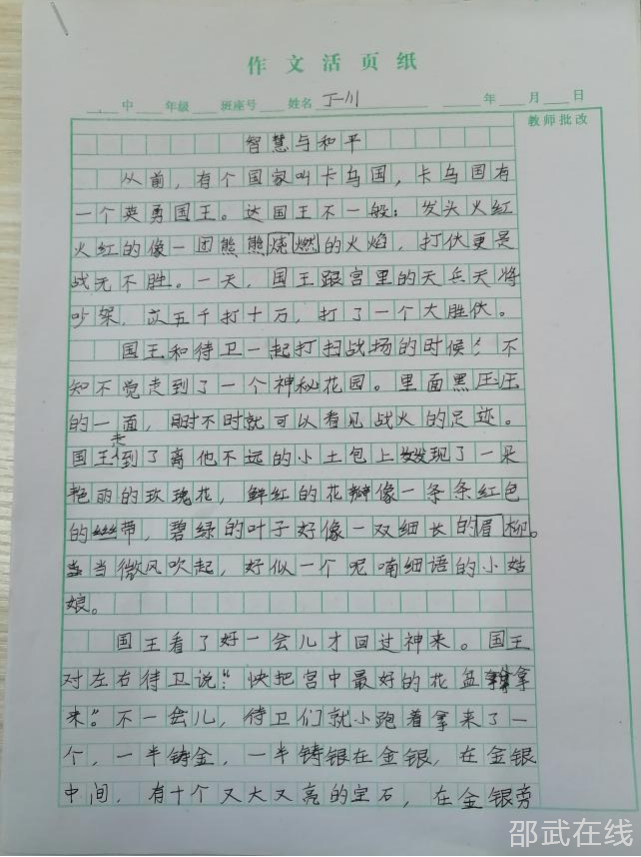 作文活页纸
中 年级 班座号 姓名 丁一川 年 月 日
教师批改
智慧与和平
从前，有个国家叫卡乌国，卡乌国有
一个英勇国王。这国王不一般：发头火红
火红的像一团熊熊炖燃的火焰，打伏更是
战无不胜。一天，国王跟宫里的天兵天将
吵架，次五千打十万，打了一个大胜伏。
国王和待卫一起打扫战场的时候，不
知不觉走到了一个神秘花园。里面黑压压
的一面，时不时就可以看见战火的足迹。
国王走到了离他不远的小土包上发现了一朵
艳丽的玫瑰花，鲜红的花瓣像一条条红色
的丝带，碧绿的叶子好像一双细长的眉柳。
当微风吹起，好似一个呢喃细语的小姑
娘。
国王看了好一会儿才回过神来。国王
对左右待卫说：“快把宫中最好的花盆拿
来”。不一会儿，待卫们就小跑着拿来了一
个，一半铸金，一半铸银在金银，在金银
中间，有十个又大又亮的宝石，在金银旁
邵武在线